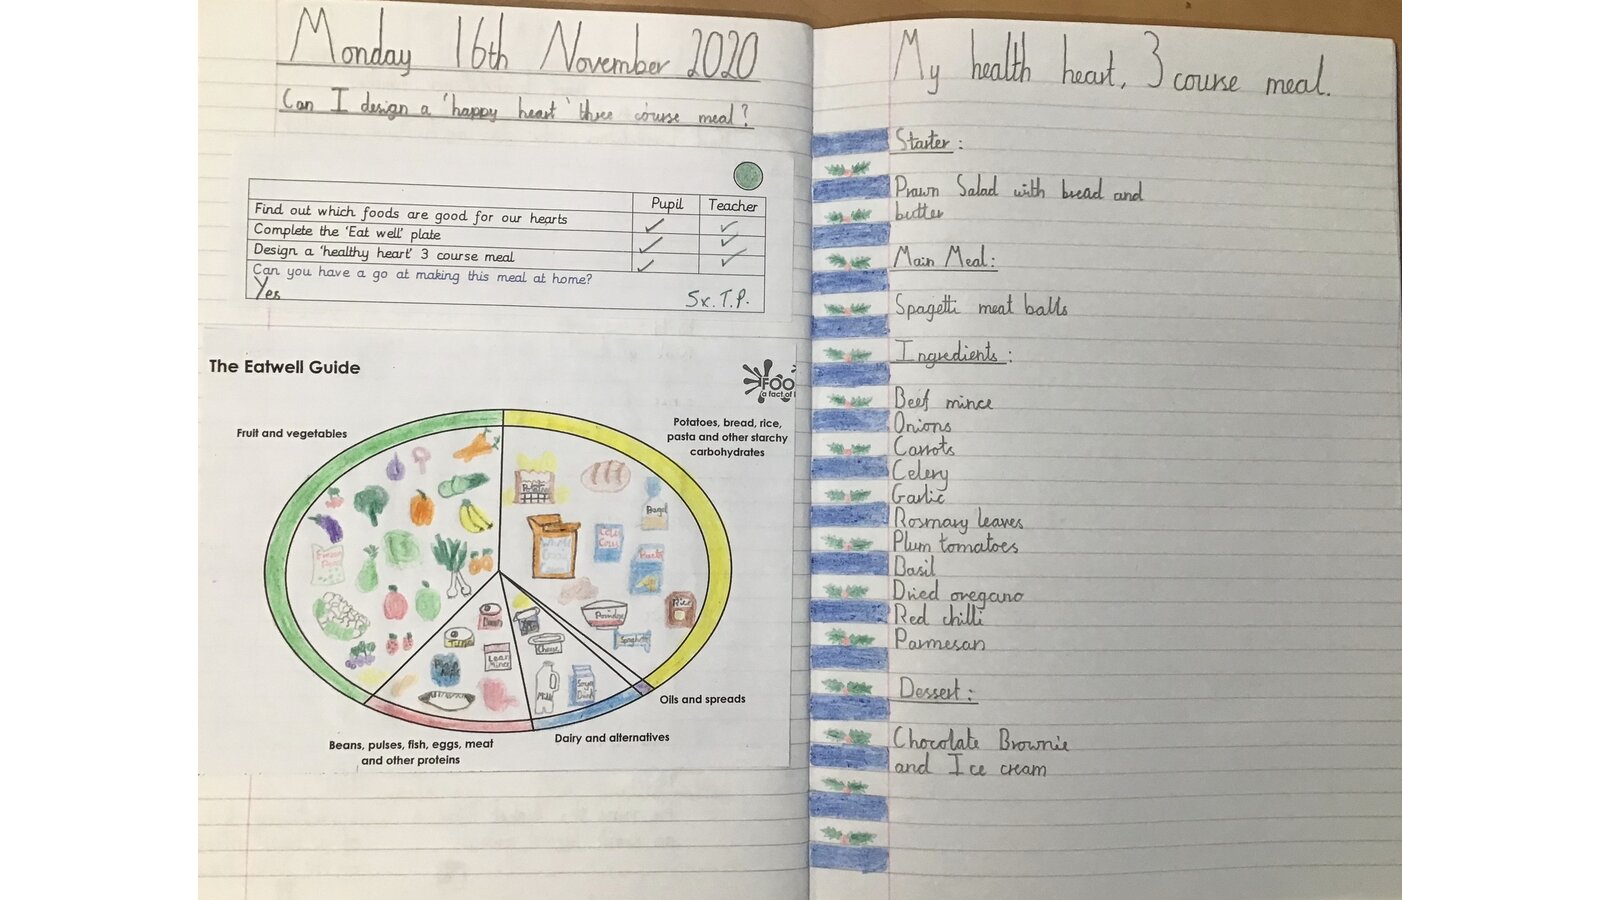 Monday 16th November 2020
Can I design a 'happy heart' three course meal?
Pupil Teacher
Find out which foods are good for our hearts
Complete the 'Eat well' plate
Design a 'healthy heart' 3 course meal
Can you have a go at making this meal at home?
Yes
Sx.T.P.
The Eatwell Guide
FOO
a fact of
Fruit and vegetables
Potatoes, bread, rice,
pasta and other starchy
carbohydrates
Bagel
Porridge
Rice
Spaghetti
Tuna
Lean
Mince
Cheese
Milk
Soya
Drink
Oils and spreads
Dairy and alternatives
Beans, pulses, fish, eggs, meat
and other proteins
My health heart, 3 course meal.
Starter:
Prawn Salad with bread and
butter
Main Meal:
Spagetti meat balls
Ingredients:
Beef mince
Onions
Carrots
Celery
Garlic
Rosmary leaves
Plum tomatoes
Basil
Dried oregano
Red chilli
Parmesan
Dessert:
Chocolate Brownie
and Ice cream